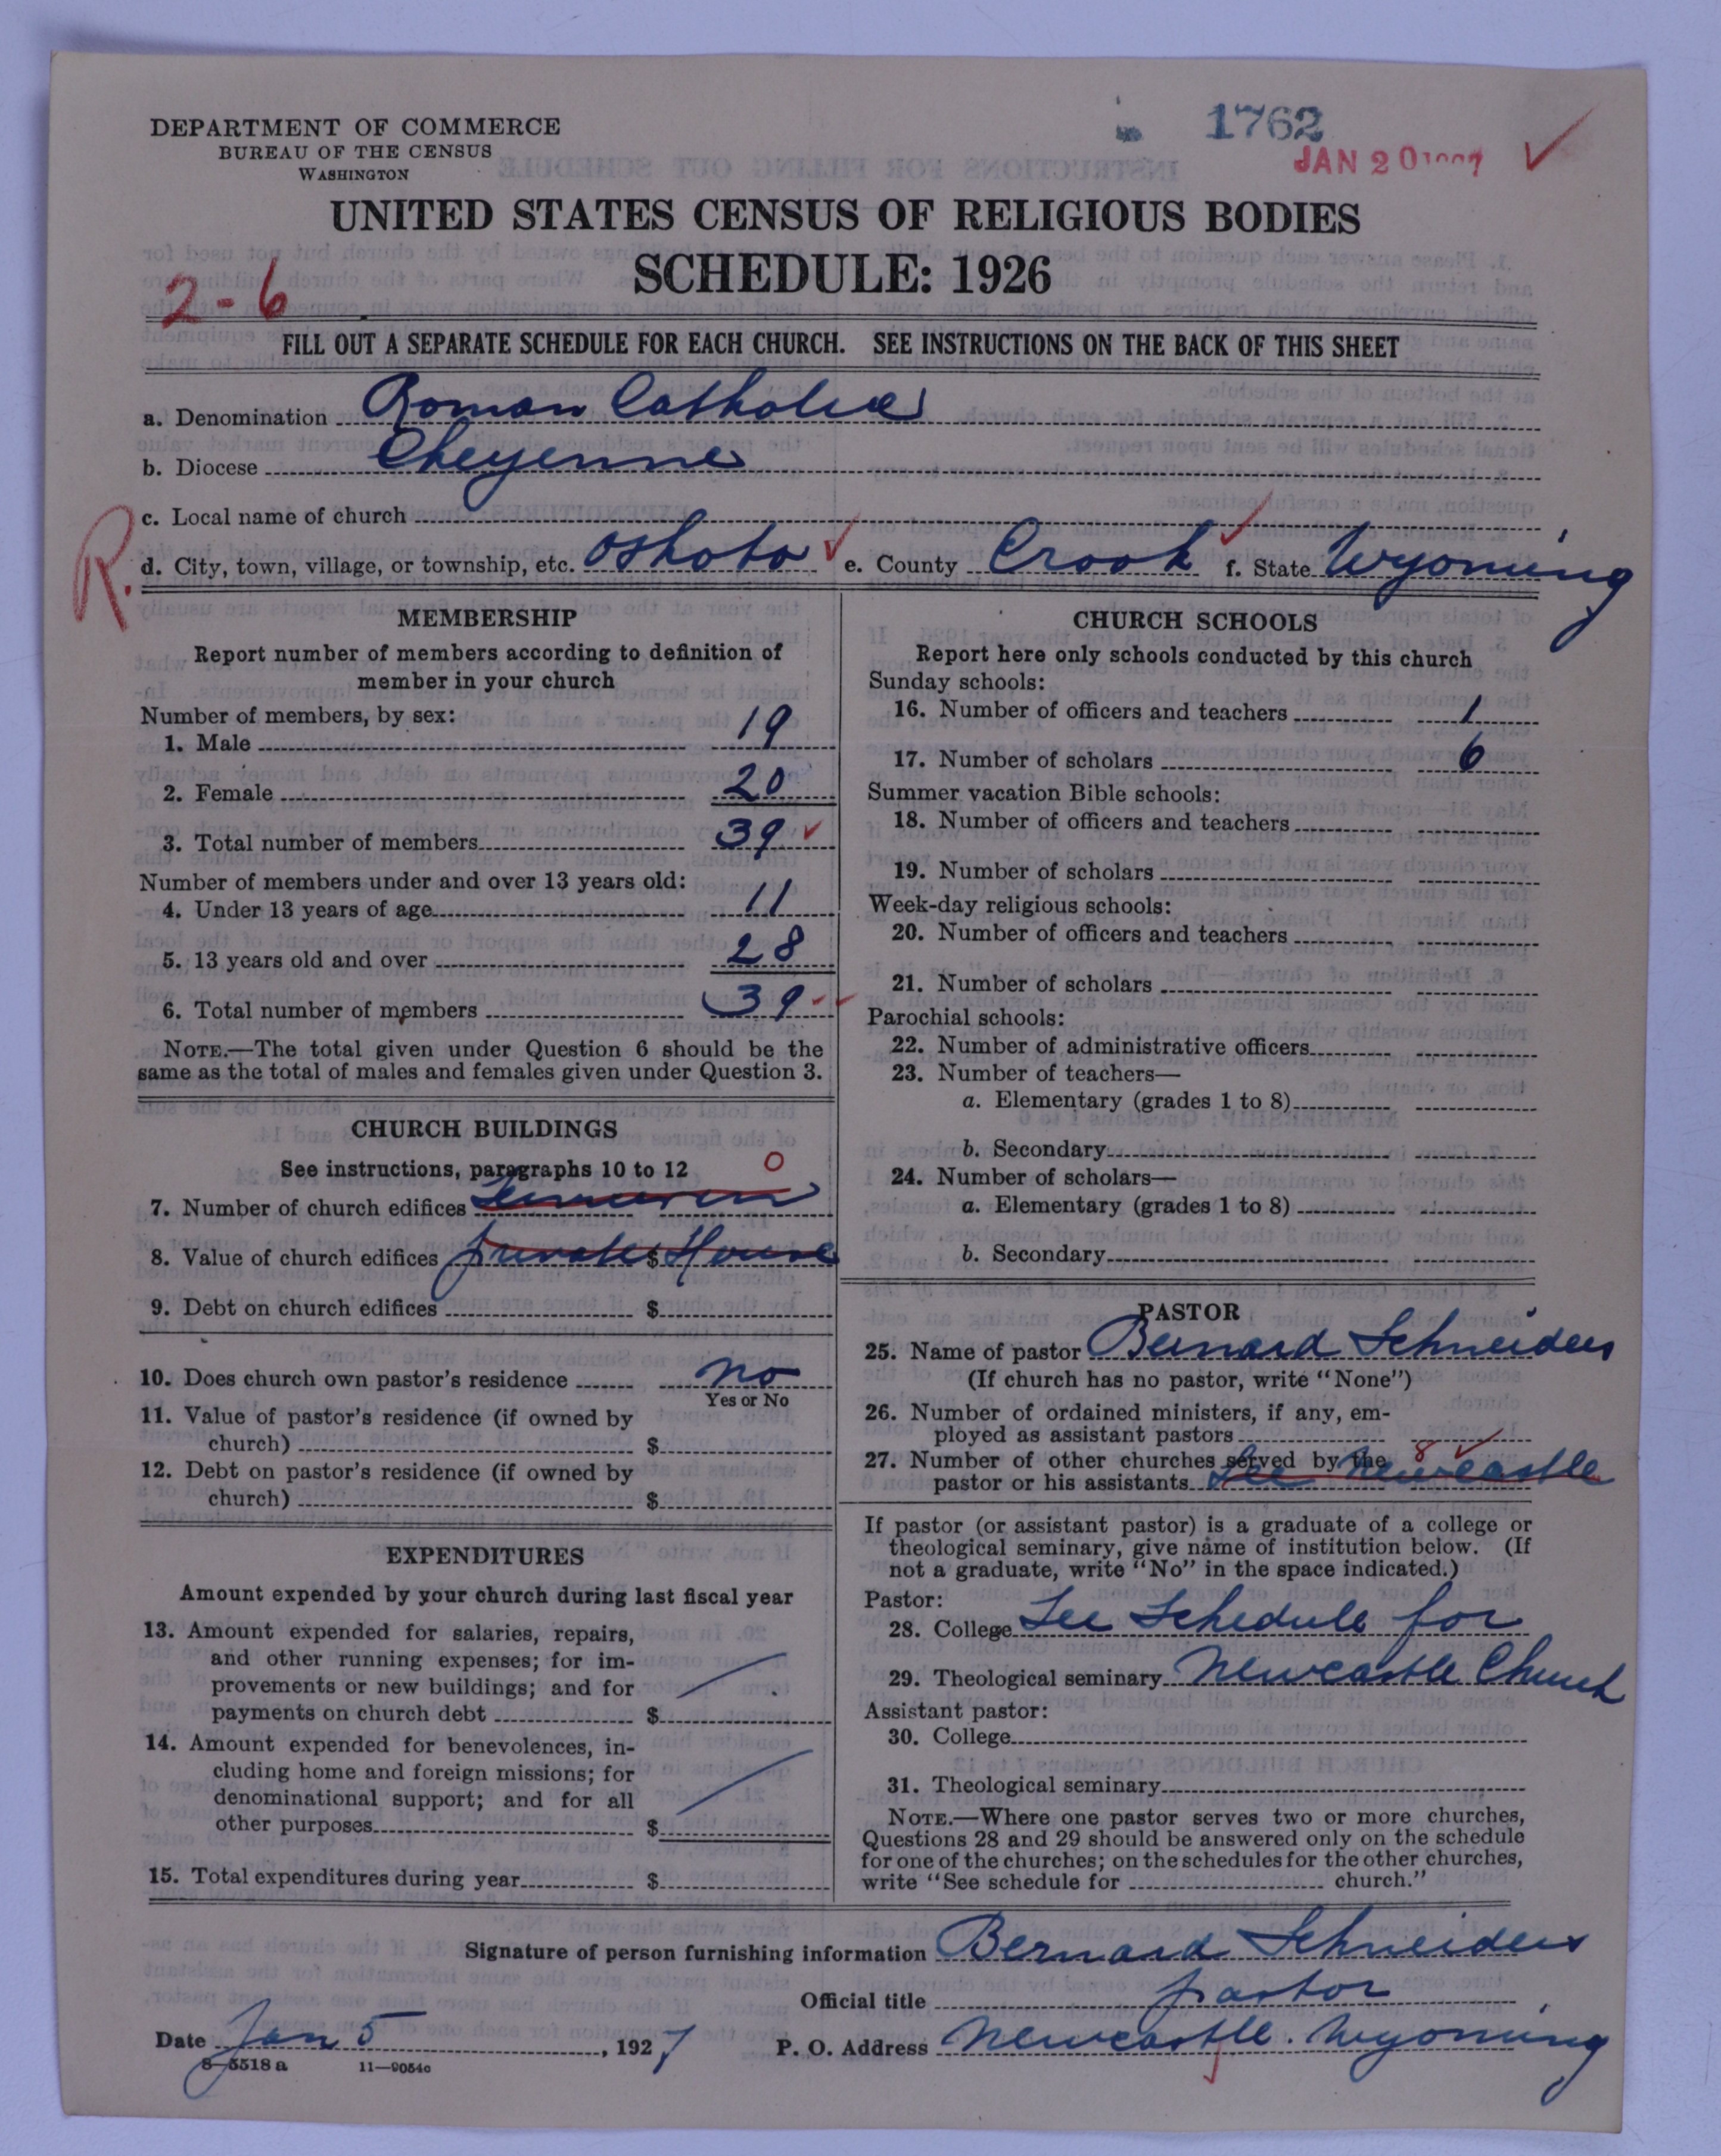 DEPARTMENT OF COMMERCE
BUREAU OF THE CENSUS
WASHINGTON
1762
JAN 20 1927
UNITED STATES CENSUS OF RELIGIOUS BODIES
SCHEDULE: 1926
2-6
FILL OUT A SEPARATE SCHEDULE FOR EACH CHURCH. SEE INSTRUCTIONS ON THE BACK OF THIS SHEET
a. Denomination Roman Catholic
b. Diocese Cheyenne
c. Local name of church
R.
d. City, town, village, or township, etc. Oshoto e. County Crook f. State Wyoming
MEMBERSHIP
Report number of members according to definition of
member in your church
Number of members, by sex:
1. Male 19
2. Female 20
3. Total number of members 39
Number of members under and over 13 years old:
4. Under 13 years of age 11
5. 13 years old and over 28
6. Total number of members 39
NOTE.—The total given under Question 6 should be the
same as the total of males and females given under Question 3.
CHURCH BUILDINGS
See instructions, paragraphs 10 to 12 0
7. Number of church edifices
8. Value of church edifices private $ House
9. Debt on church edifices $
10. Does church own pastor's residence no
Yes or No
11. Value of pastor's residence (if owned by
church) $
12. Debt on pastor's residence (if owned by
church) $
EXPENDITURES
Amount expended by your church during last fiscal year
13. Amount expended for salaries, repairs,
and other running expenses; for im-
provements or new buildings; and for
payments on church debt $
14. Amount expended for benevolences, in-
cluding home and foreign missions; for
denominational support; and for all
other purposes $
15. Total expenditures during year $
CHURCH SCHOOLS
Report here only schools conducted by this church
Sunday schools:
16. Number of officers and teachers 1
17. Number of scholars 6
Summer vacation Bible schools:
18. Number of officers and teachers
19. Number of scholars
Week-day religious schools:
20. Number of officers and teachers
21. Number of scholars
Parochial schools:
22. Number of administrative officers
23. Number of teachers—
a. Elementary (grades 1 to 8)
b. Secondary
24. Number of scholars—
a. Elementary (grades 1 to 8)
b. Secondary
PASTOR
25. Name of pastor Bernard Schneiders
(If church has no pastor, write "None")
26. Number of ordained ministers, if any, em-
ployed as assistant pastors
27. Number of other churches served by the 8
pastor or his assistants See Newcastle
If pastor (or assistant pastor) is a graduate of a college or
theological seminary, give name of institution below. (If
not a graduate, write "No" in the space indicated.)
Pastor:
28. College See Schedule for
29. Theological seminary Newcastle Church
Assistant pastor:
30. College
31. Theological seminary
NOTE.—Where one pastor serves two or more churches,
Questions 28 and 29 should be answered only on the schedule
for one of the churches; on the schedules for the other churches,
write "See schedule for church."
Signature of person furnishing information Bernard Schneiders
Official title pastor
Date Jan 5, 1927 P. O. Address Newcastle. Wyoming
8-5518 a 11-9054c